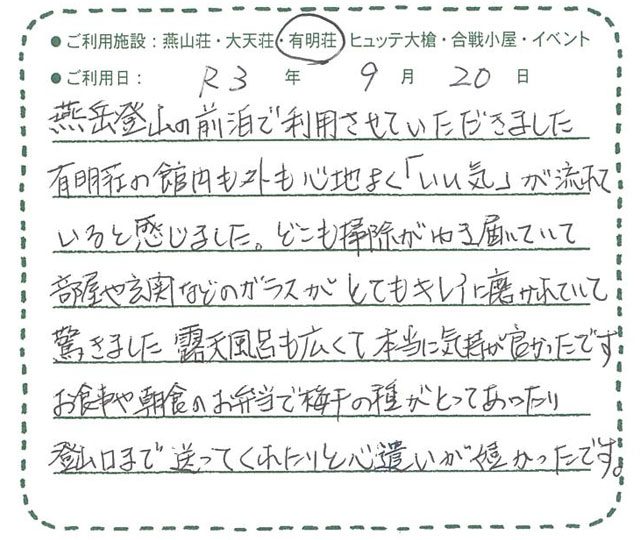 ● ご利用施設：燕山荘・大天荘・有明荘 ヒュッテ大槍・合戦小屋・イベント
● ご利用日： R3 年 9 月 20 日
燕岳登山の前泊で利用させていただきました
有明荘の館内も外も心地よく「いい気」が流れて
いると感じました。どこも掃除がゆき届いていて
部屋や玄実などのガラスがとてもキレイに磨かれていて
驚きました 露天風呂も広くて本当に気持が良かったです
お食事や朝食のお弁当で梅干の種がとってあったり
登山口まで送ってくれたりと心遣いが嬉かったです。